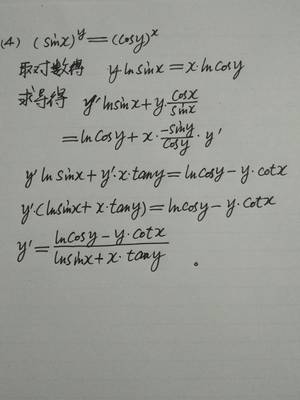 (4) (sinx)^y = (cosy)^x
取对数得 y·lnsinx = x·lncosy
求导得 y'lnsinx + y·\frac{cosx}{sinx}
= lncosy + x·\frac{-siny}{cosy}·y'
y'lnsinx + y'·x·tany = lncosy - y·cotx
y'·(lnsinx + x·tany) = lncosy - y·cotx
y' = \frac{lncosy - y·cotx}{lnsinx + x·tany}。